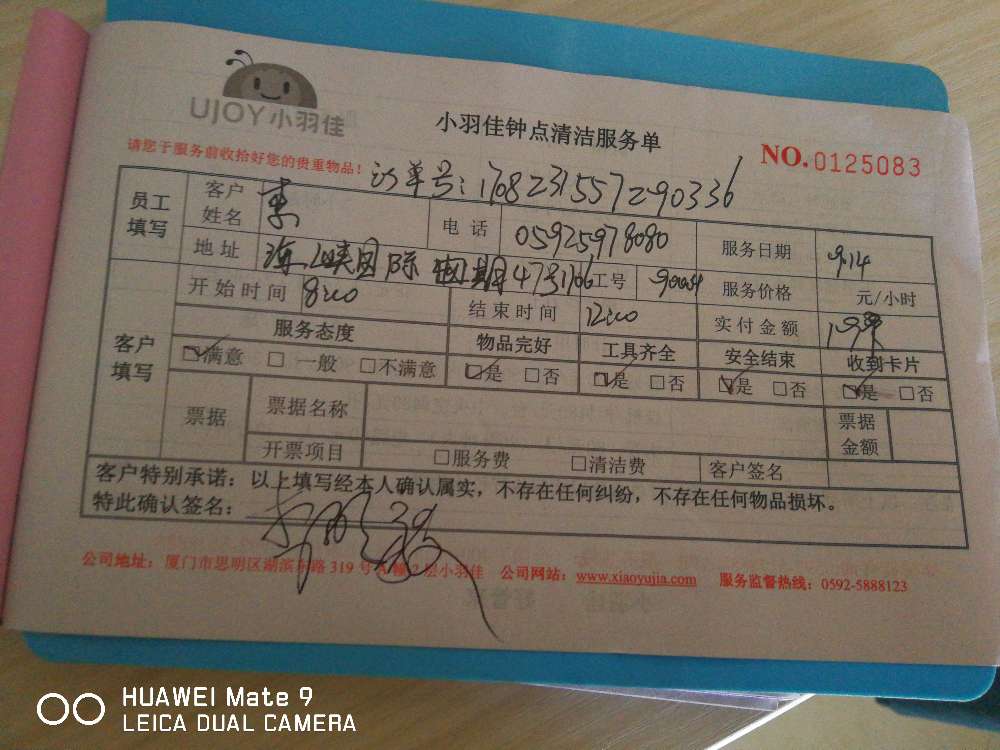 UJOY小羽佳
小羽佳钟点清洁服务单
NO.0125083
请您于服务前收拾好您的贵重物品！
订单号：170823155729 0336
员工填写 客户姓名 电话 05925978080 服务日期 9.14
地址 海峡国际 期47号1106 工号 服务价格 元/小时
开始时间 8:00 结束时间 12:00 实付金额
客户填写 服务态度 物品完好 工具齐全 安全结束 收到卡片
满意 一般 不满意 是 否 是 否 是 否 是 否
票据 票据名称 票据金额
开票项目 服务费 清洁费 客户签名
客户特别承诺：以上填写经本人确认属实，不存在任何纠纷，不存在任何物品损坏。
特此确认签名：
公司地址：厦门市思明区湖滨东路 319 号 A 幢 2 层小羽佳 公司网站：www.xiaoyujia.com 服务监督热线：0592-5888123
HUAWEI Mate 9
LEICA DUAL CAMERA